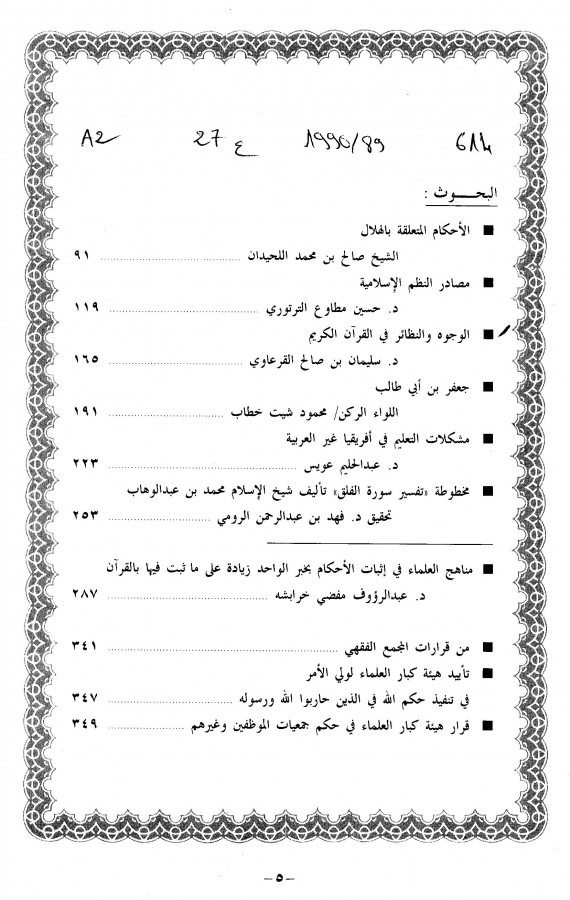 A2 27 ع 1990/89 614
البحوث :
■ الأحكام المتعلقة بالهلال
الشيخ صالح بن محمد اللحيدان ........ ٩١
■ مصادر النظم الإسلامية
د. حسين مطاوع الترتوري ........ ١١٩
■ الوجوه والنظائر في القرآن الكريم
د. سليمان بن صالح القرعاوي ........ ١٦٥
■ جعفر بن أبي طالب
اللواء الركن/ محمود شيت خطاب ........ ١٩١
■ مشكلات التعليم في أفريقيا غير العربية
د. عبدالحليم عويس ........ ٢٢٣
■ مخطوطة «تفسير سورة الفلق» تأليف شيخ الإسلام محمد بن عبدالوهاب
تحقيق د. فهد بن عبدالرحمن الرومي ........ ٢٥٣
■ مناهج العلماء في إثبات الأحكام بخبر الواحد زيادة على ما ثبت فيها بالقرآن
د. عبدالرؤوف مفضي خرابشه ........ ٢٨٧
■ من قرارات المجمع الفقهي ........ ٣٤١
■ تأييد هيئة كبار العلماء لولي الأمر
في تنفيذ حكم الله في الذين حاربوا الله ورسوله ........ ٣٤٧
■ قرار هيئة كبار العلماء في حكم جمعيات الموظفين وغيرهم ........ ٣٤٩
– ٥ –